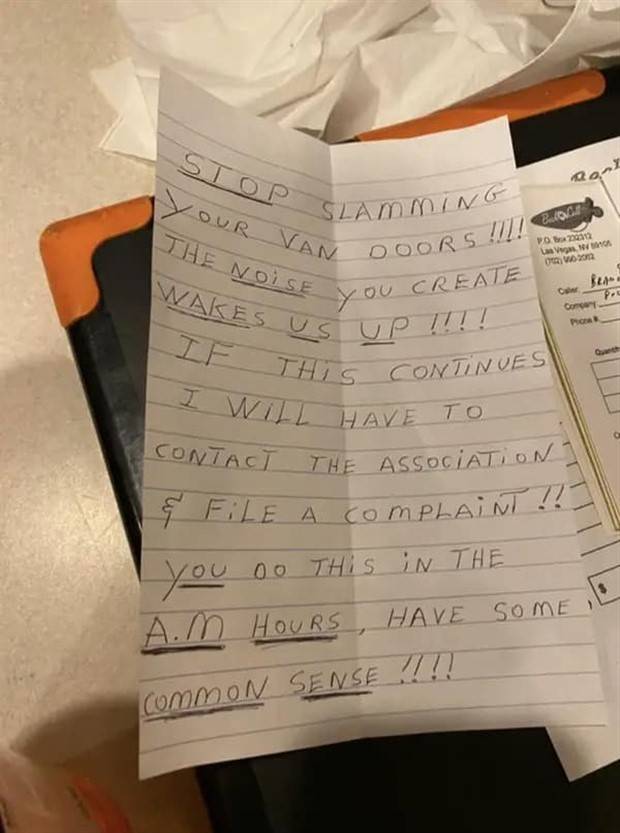 STOP SLAMMING
YOUR VAN DOORS!!!!
THE NOISE YOU CREATE
WAKES US UP!!!!
IF THIS CONTINUES
I WILL HAVE TO
CONTACT THE ASSOCIATION
& FILE A COMPLAINT!!
YOU DO THIS IN THE
A.M HOURS, HAVE SOME
COMMON SENSE!!!!
P.O. Box
Las Vegas, NV
Caller
Company
Phone #
$